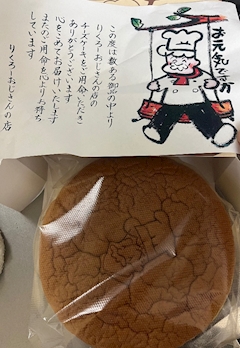 お元気ですか
この度は数ある御品の中より
りくろーおじさんの店の
チーズケーキをご用命いただき
ありがとうございます
心をこめてお届けいたします
またのご用命を心よりお待ち
しています
りくろーおじさんの店